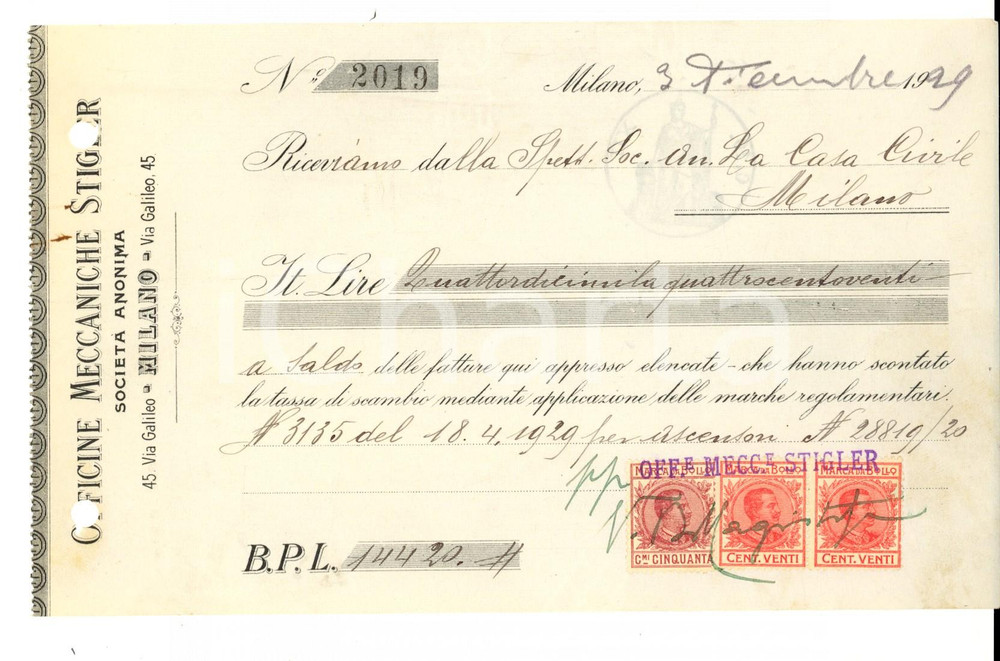 OFFICINE MECCANICHE STIGLER
SOCIETÀ ANONIMA
45. Via Galileo - MILANO - Via Galileo, 45
N.º 2019
Milano, 3 1929
Riceviamo dalla Spett. Soc. An. La Casa Civile
Milano
It. Lire Quattordicimila quattrocentoventi
a Saldo delle fatture qui appresso elencate - che hanno scontato
la tassa di scambio mediante applicazione delle marche regolamentari.
N 3135 del 18.4.1929 per ascensori N 28819/20
OFF.E MECC.E STIGLER
pp
MARCA DA BOLLO MARCA DA BOLLO MARCA DA BOLLO
CMI CINQUANTA CENT. VENTI CENT. VENTI
B.P.L. 14420.